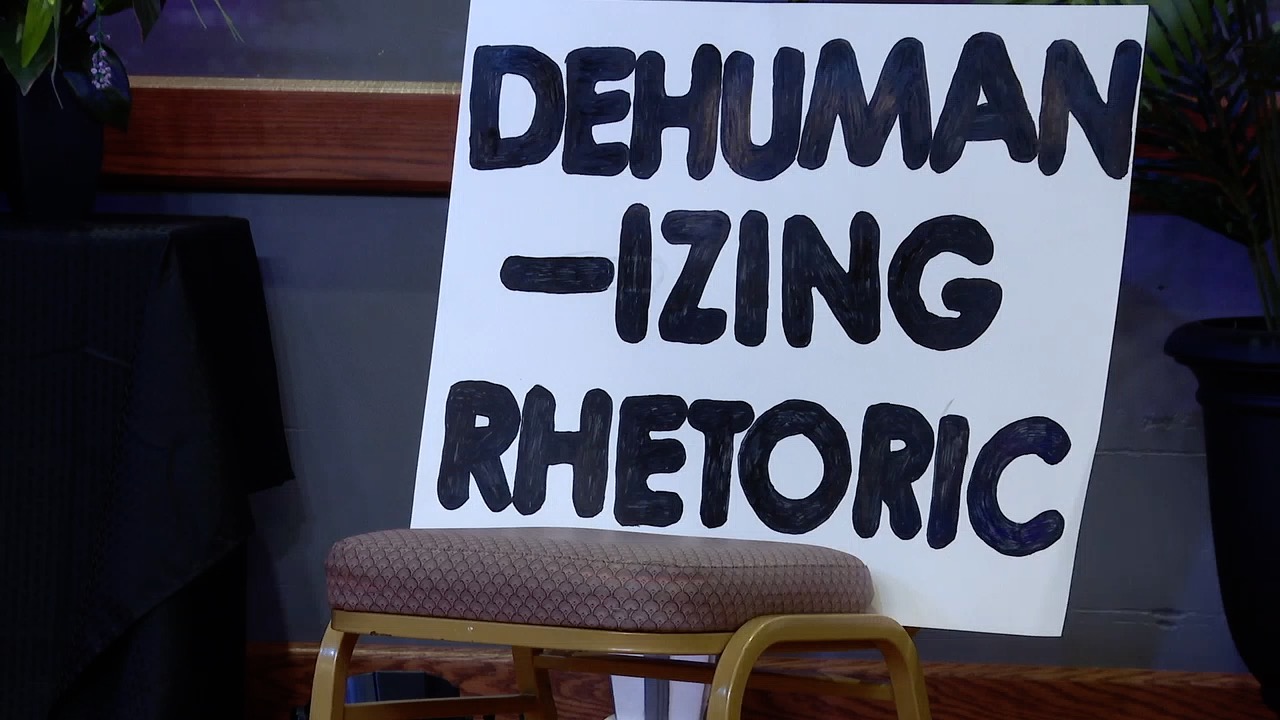 DEHUMAN
-IZING
RHETORIC